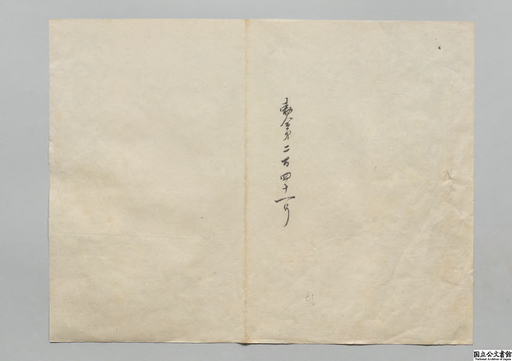 勅令第二百四十一号
国立公文書館
National Archives of Japan